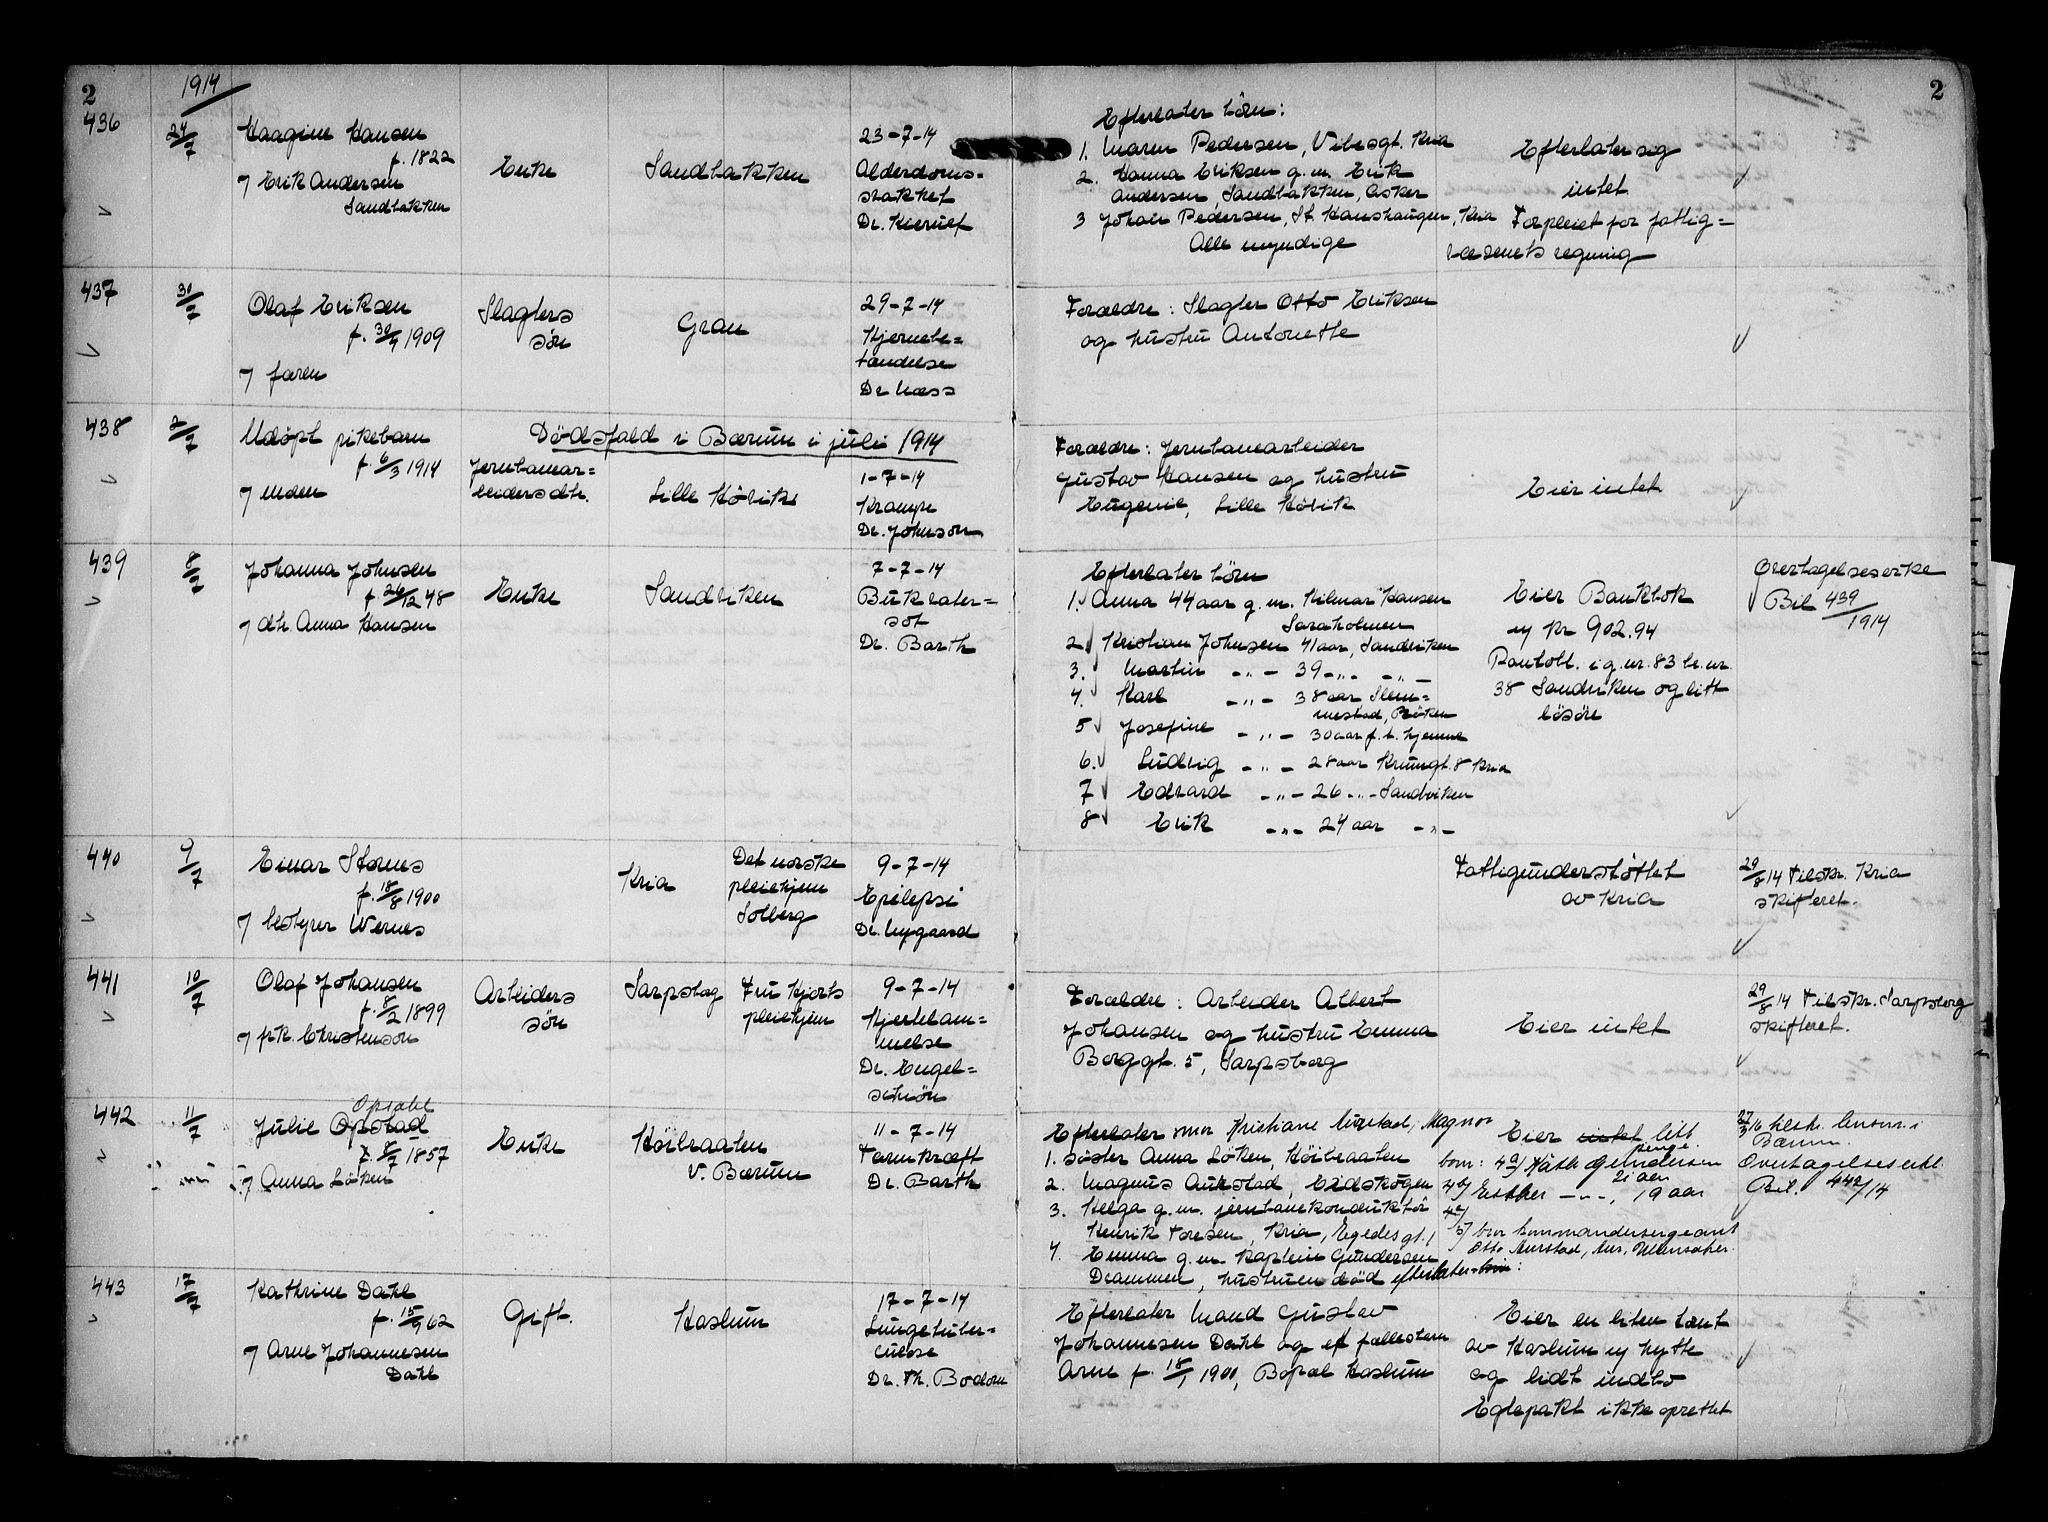 2
1914
2
436
24/7
Haagine Hansen
f. 1822
7 Erik Andersen
Sandbakken
Enke
Sandbakken
23-7-14
Alderdoms=
svakhet
Dr. Kierulf
Efterlater börn:
1. Maren Pedersen, Vibesgt. Kria
2. Hanna Eriksen g.m. Erik
Andersen, Sandbakken, Asker
3 Johan Pedersen, St. Hanshaugen, Kria
Alle myndige
Efterlater sig
intet
Forpleiet for fattig=
væsenets regning
437
30/7
Olaf Eriksen
f. 30/9 1909
7 faren
Slagters
sön
Gran
29-7-14
Hjernebe=
tændelse
Dr Næss
Forældre: Slagter Otto Eriksen
og hustru Antonette
Dödsfald i Bærum i juli 1914
438
2/7
Udöpt pikebarn
f. 6/3 1914
7 moden
Jernbanear=
beidersdtr.
Lille Hövik
1-7-14
Krampe
Dr. Johnson
Forældre: Jernbanearbeider
Gustav Hansen og hustru
Eugenie, Lille Hövik
Eier intet
439
8/7
Johanna Johnsen
f. 26/12 48
7 dtr. Anna Hansen
Enke
Sandviken
7-7-14
Bukvater=
sot
Dr. Barth
Efterlater börn
1. Anna 44 aar g.m. Hilmar Hansen
Saraholmen
2 Kristian Johnsen 41 aar, Sandviken
3. Martin -"- 39 -"- -"-
4. Karl -"- 38 aar Slem=
mestad, Röken
5 Josefine -"- 30 aar f.t. hjemme
6. Ludvig -"- 28 aar Krumgt. 8 Kria
7 Edvard -"- 26 -"- Sandviken
8 Erik -"- 24 aar -"-
Eier Bankbok
m/ Kr 902.94
Pantobl. i g.nr. 83 br.nr.
38 Sandviken og litt
lösöre
Overtagelseserkl
Bil 439/1914
440
9/7
Einar Stornes
f. 18/8 1900
7 bestyrer Wernes
Kria
Det norske
pleiehjem
Solberg
9-7-14
Epilepsi
Dr. Nygaard
Fattigunderstöttet
av Kria
29/8 14 tilskr. Kria
skifteret.
441
10/7
Olaf Johansen
f. 8/2 1899
7 frk. Christenson
Arbeiders
sön
Sarpsbog
Fru Hjorts
pleiehjem
9-7-14
Hjertelam=
melse
Dr. Engel=
schiön
Forældre: Arbeider Albert
Johansen og hustru Emma
Borggt. 5, Sarpsborg
Eier intet
29/8 14 tilskr. Sarpsborg
skifteret.
442
11/7
Opstad
Julie Opstad
f. 8/7 1857
7 Anna Löken
Enke
Höibraaten
V. Bærum
11-7-14
Tarmkræft
Dr. Barth
Efterlater mor Kristiane Aurstad, Magnor
1. söster Anna Löken, Höibraaten
2. Magnus Aurstad, Eidskogen
3. Helga g.m. jernbanekonduktör
Henrik Toresen, Kria, Egedesgt. 1
4. Emma g.m. Kaptein Gundersen
Drammen, hustruen död efterlater
Eier intet litt
penge
born: 4a) Gundersen
21 aar
4b) Esther -"-, 19 aar
4c)
5) bror kommandersergeant
Otto Aurstad, Ullensaker
27/3 16 tilskr. lensm. i
Bærum.
Overtagelseserkl.
Bil. 442/14
443
17/7
Kathrine Dahl
f. 15/9 62
7 Arne Johannesen
Dahl
Gift.
Haslum
17-7-14
Lungetuber=
culose
Dr. Th. Bodom
Efterlater mand Gustav
Johannesen Dahl og et fællesbarn
Arne f. 18/1 1900, Bopæl Haslum
Eier en liten tomt
av Haslum m/ hytte
og lidt indbo
Egtepakt ikke oprettet